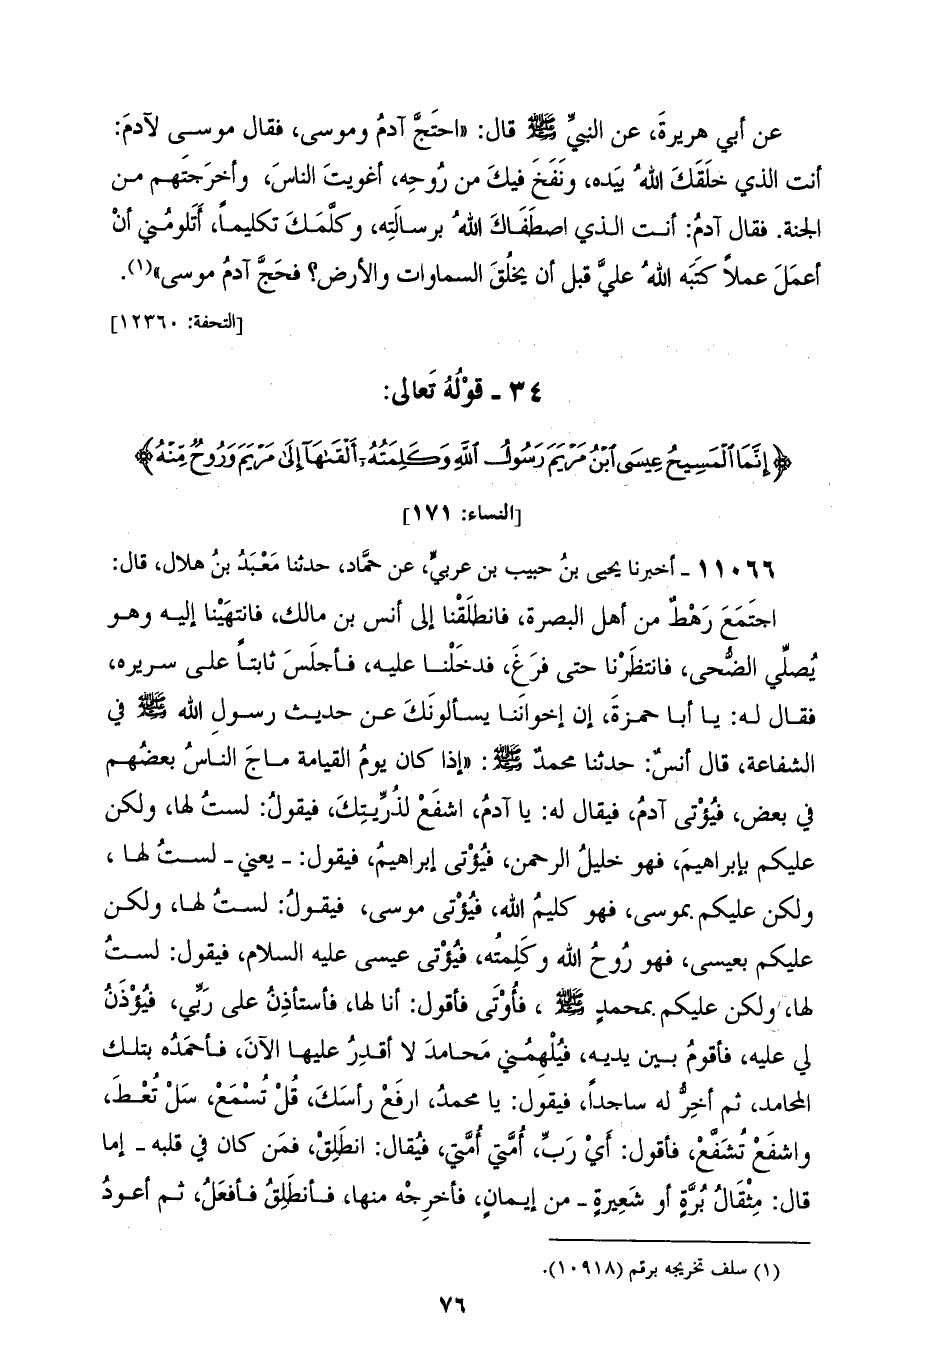 عن أبي هريرةَ، عن النبيِّ ﷺ قال: «احتَجَّ آدمُ وموسى، فقال موسى لآدمَ:
أنت الذي خلَقَكَ اللهُ بيَده، ونَفَخَ فيكَ من رُوحِه، أغويتَ الناسَ، وأخرجتَهم من
الجنة. فقال آدمُ: أنت الذي اصطَفَاكَ اللهُ برسالَتِه، وكلَّمَكَ تكليماً، أَتَلومُني أنْ
أعمَلَ عملاً كتَبَه اللهُ عليَّ قبل أن يخلُقَ السماوات والأرض؟ فحَجَّ آدمُ موسى»(١).
[التحفة: ١٢٣٦٠]
٣٤ ـ قوْلُهُ تَعالى:
﴿إِنَّمَا ٱلْمَسِيحُ عِيسَى ٱبْنُ مَرْيَمَ رَسُولُ ٱللَّهِ وَكَلِمَتُهُۥٓ أَلْقَىٰهَآ إِلَىٰ مَرْيَمَ وَرُوحٌ مِّنْهُ﴾
[النساء: ١٧١]
١١٠٦٦ ـ أخبرنا يحيى بنُ حبيب بن عربيٍّ، عن حمَّاد، حدثنا مَعْبَدُ بنُ هلال، قال:
اجتَمَعَ رَهْطٌ من أهل البصرة، فانطلَقْنا إلى أنس بن مالك، فانتهَيْنا إليه وهو
يُصلِّي الضُّحى، فانتظَرْنا حتى فرَغَ، فدخَلْنا عليه، فأجلَسَ ثابتاً على سريره،
فقال له: يا أبا حمزةَ، إن إخوانَنا يسألونَكَ عن حديث رسولِ الله ﷺ في
الشفاعة، قال أنسٌ: حدثنا محمدٌ ﷺ: «إذا كان يومُ القيامة ماجَ الناسُ بعضُهم
في بعض، فيُؤْتى آدمُ، فيقال له: يا آدمُ، اشفَعْ لذُرِّيتِكَ، فيقولُ: لستُ لها، ولكن
عليكم بإبراهيمَ، فهو خليلُ الرحمن، فيُؤْتى إبراهيمُ، فيقول: ـ يعني ـ لستُ لها،
ولكن عليكم بموسى، فهو كليمُ الله، فيُؤْتى موسى، فيقولُ: لستُ لها، ولكن
عليكم بعيسى، فهو رُوحُ الله وكَلِمتُه، فيُؤْتى عيسى عليه السلام، فيقول: لستُ
لها، ولكن عليكم بمحمدٍ ﷺ، فأُوتَى فأقول: أنا لها، فأستأذِنُ على رَبِّي، فيُؤْذَنُ
لي عليه، فأقومُ بين يديه، فيُلْهِمُني مَحامدَ لا أقدِرُ عليها الآنَ، فأحمَدُه بتلك
المحامد، ثم أخِرُّ له ساجداً، فيقول: يا محمدُ، ارفَعْ رأسَكَ، قُلْ تُسْمَعْ، سَلْ تُعْطَ،
واشفَعْ تُشَفَّعْ، فأقول: أيْ رَبِّ، أُمَّتي أُمَّتي، فيُقال: انطَلِقْ، فمَن كان في قلبه ـ إما
قال: مِثْقالُ بُرَّةٍ أو شَعِيرةٍ ـ من إيمانٍ، فأخرِجْه منها، فأنطَلِقُ فأفعَلُ، ثم أعودُ
(١) سلف تخريجه برقم (١٠٩١٨).
٧٦